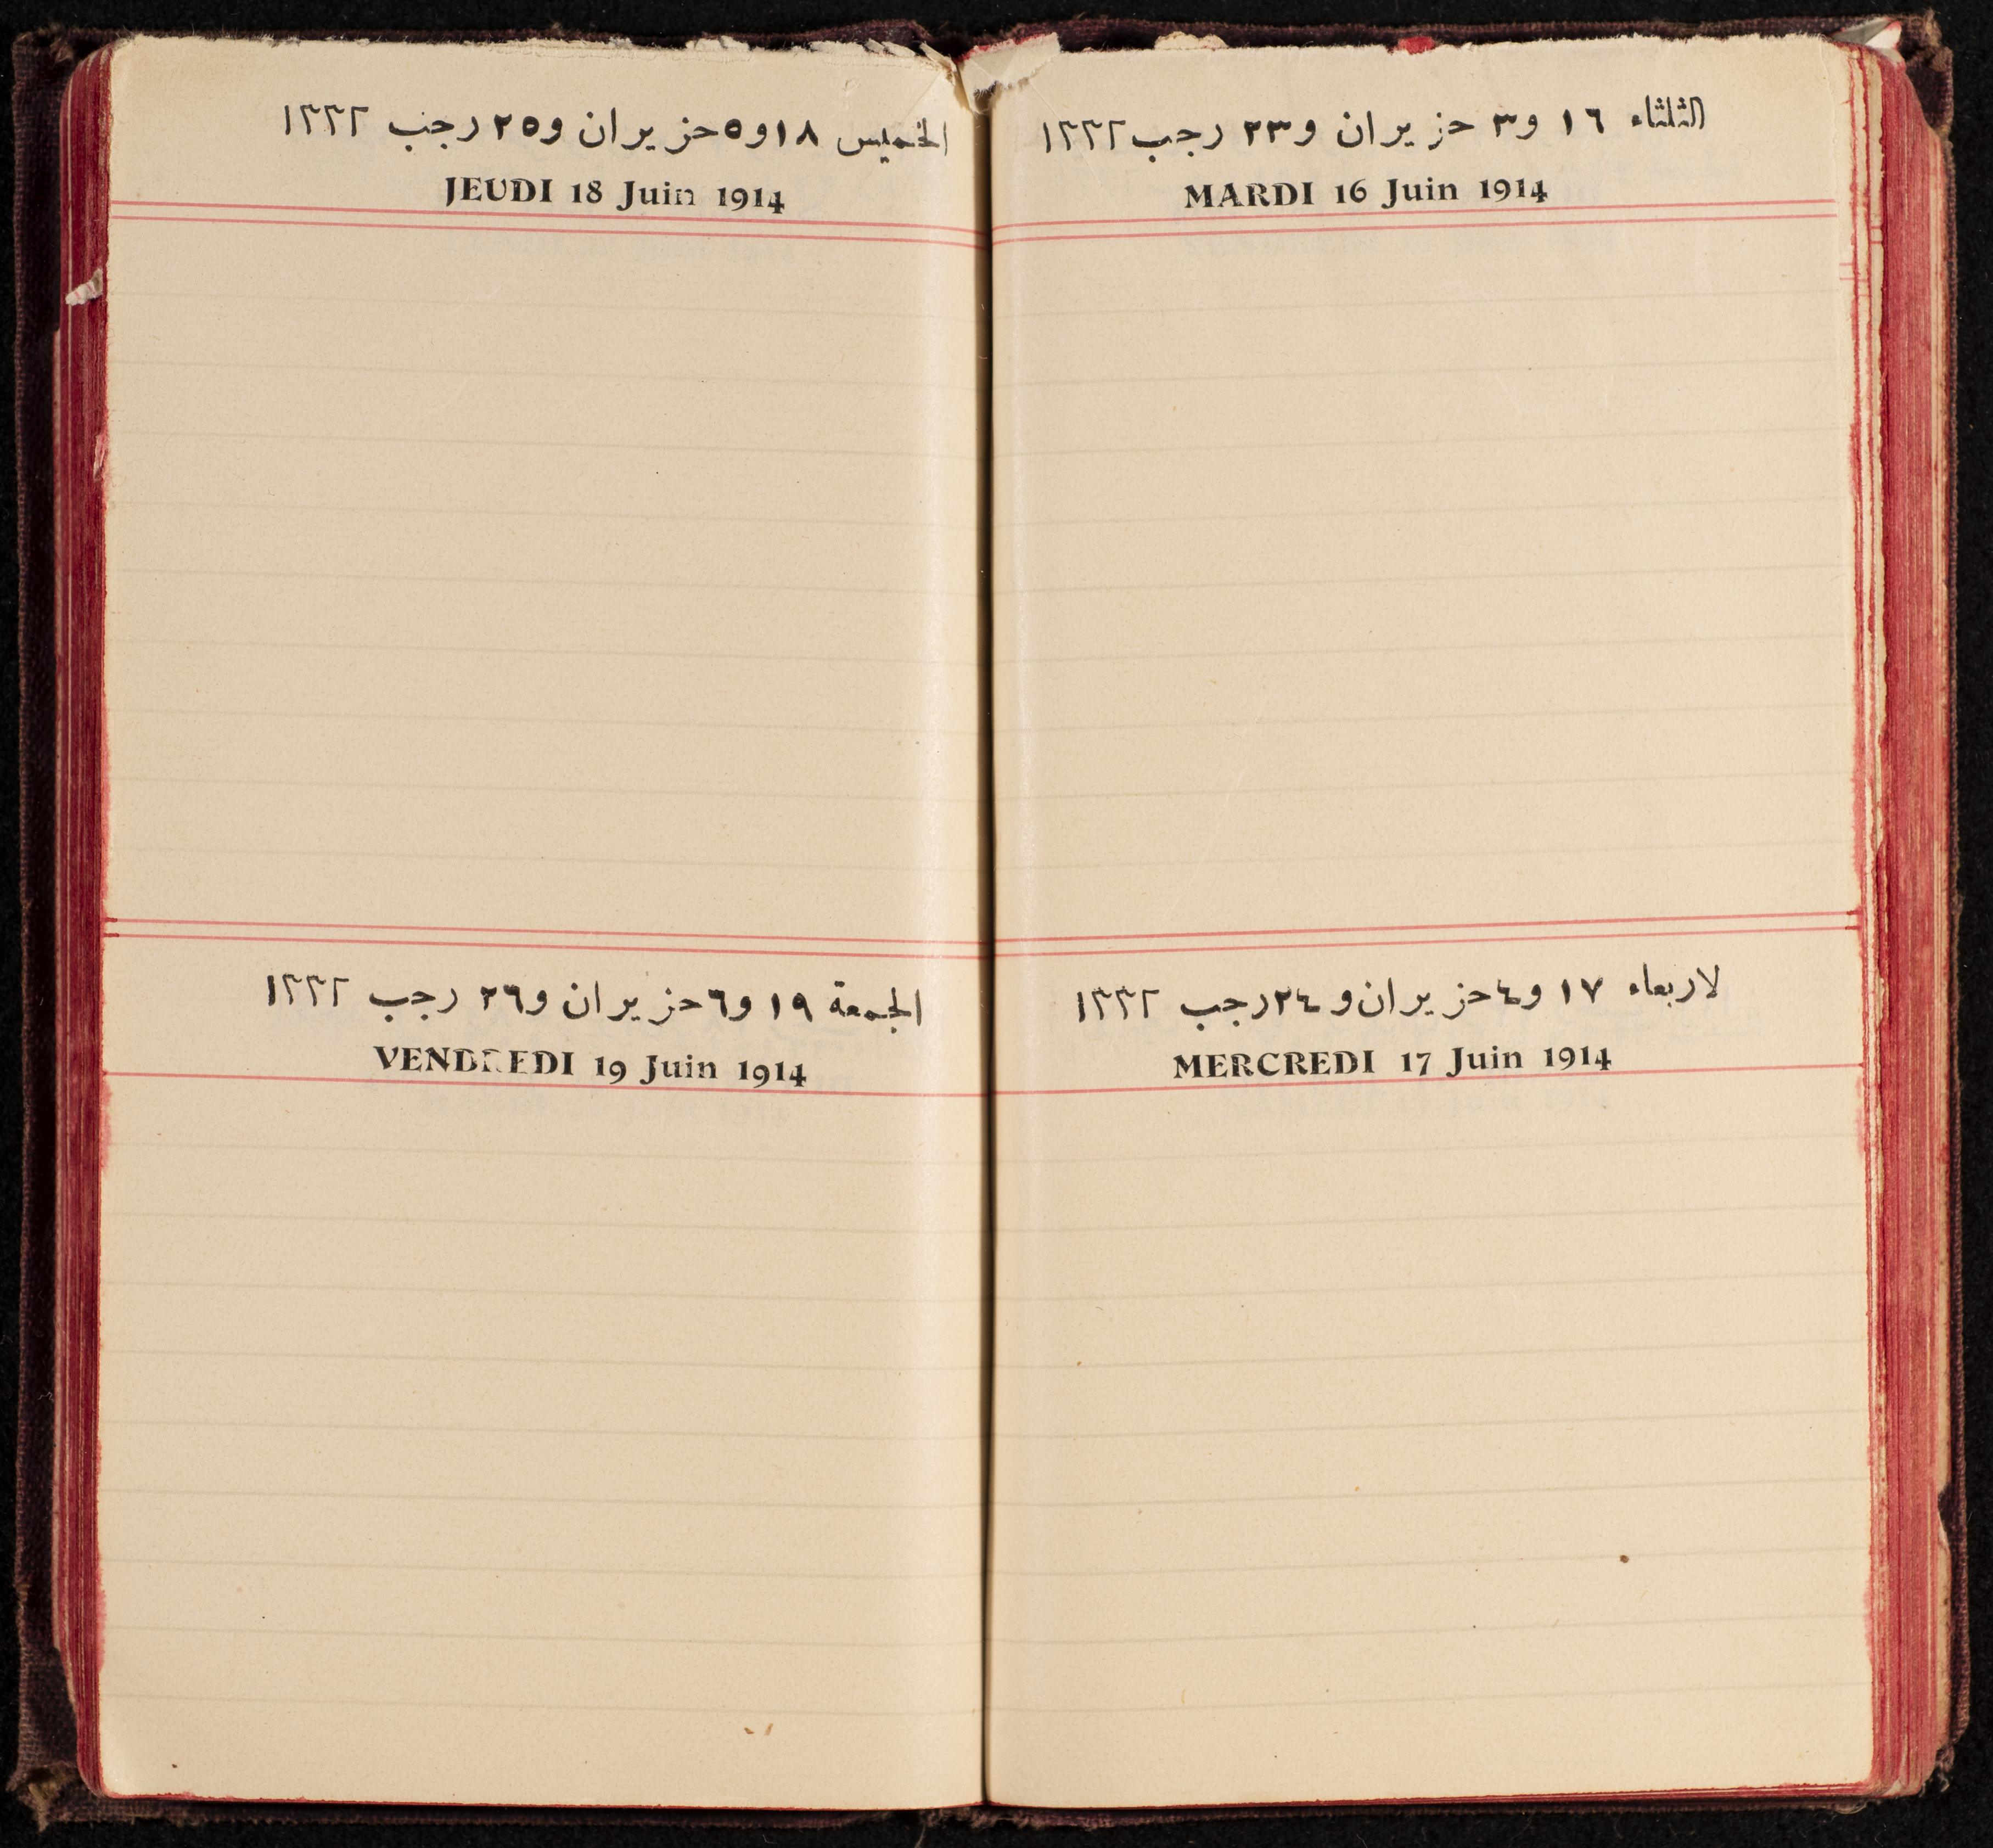 الثلثاء ١٦ و٣ حزيران و٢٣ رجب ١٣٣٢
MARDI 16 Juin 1914
لاربعاء ١٧ و٤ حزيران و٢٤ رجب ١٣٣٢
MERCREDI 17 Juin 1914
الخميس ١٨ و٥ حزيران و٢٥ رجب ١٣٣٢
JEUDI 18 Juin 1914
الجمعة ١٩ و٦ حزيران و٢٦ رجب ١٣٣٢
VENDREDI 19 Juin 1914